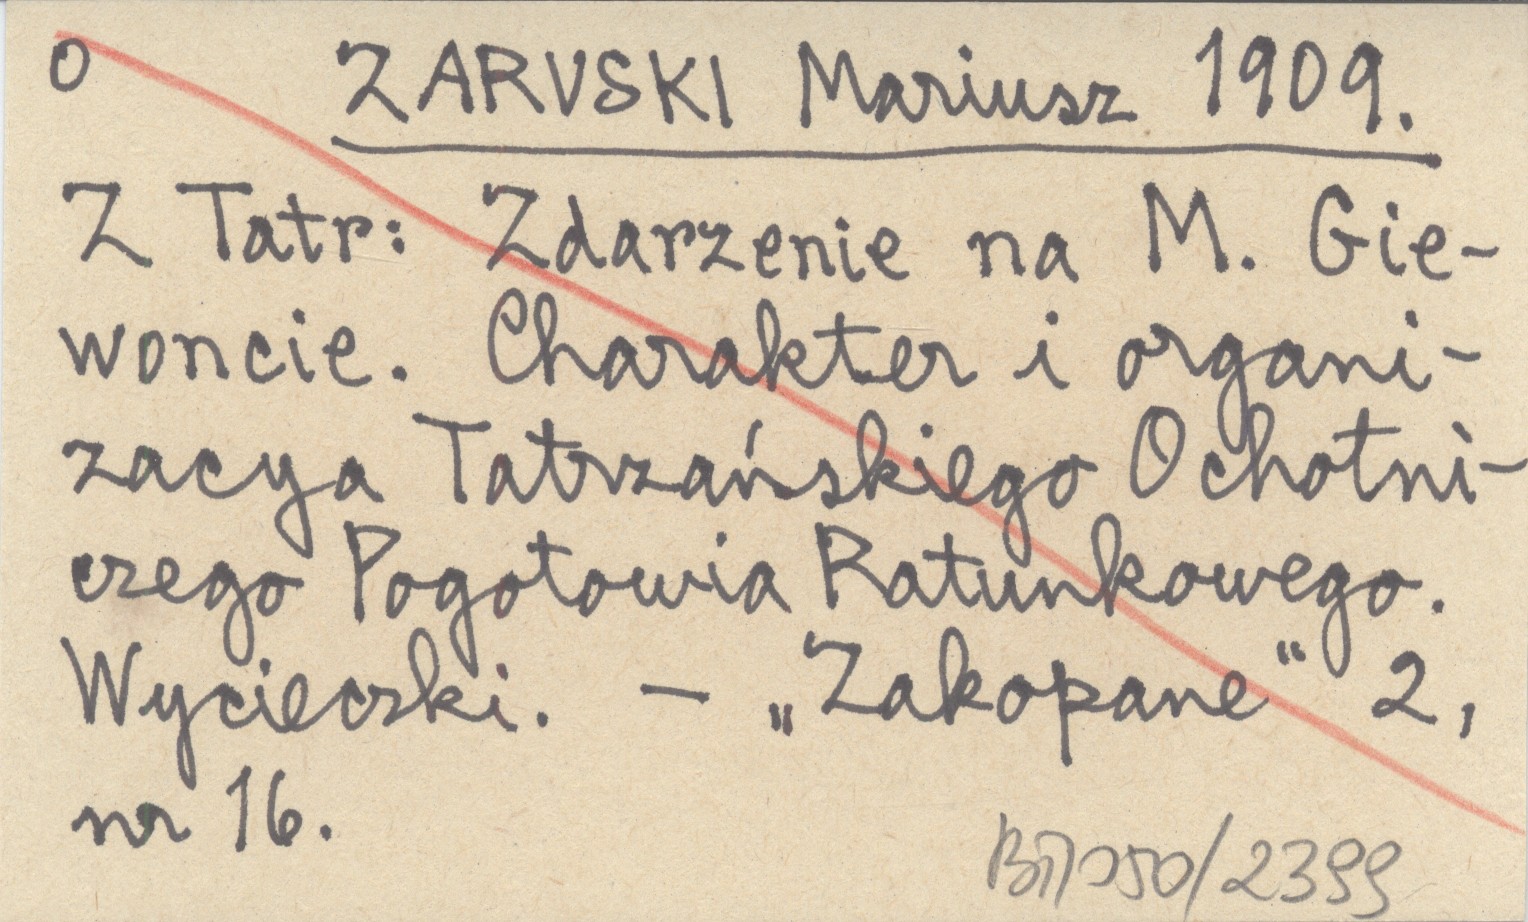 O ZARUSKI Mariusz 1909.
Z Tatr: Zdarzenie na M. Gie-
woncie. Charakter i organi-
zacya Tatrzańskiego Ochotni-
czego Pogotowia Ratunkowego.
Wycieczki. — „Zakopane“ 2,
nr 16.
/2399